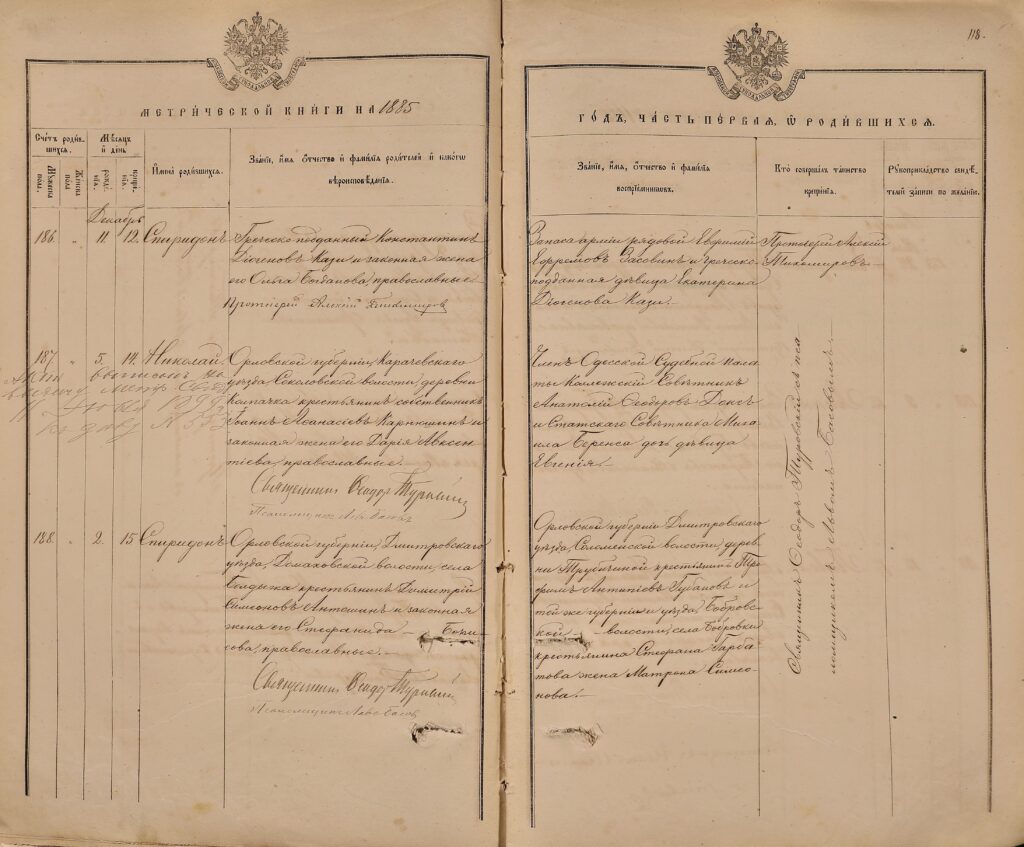 118.
МЕТРИ́ЧЕСКОЙ КНИ́ГИ НА 1885
ГО́ДЪ, ЧА́СТЬ ПЕ́РВАЯ, Ѡ РОДИ́ВШИХСѦ.
Счетъ роди́вшихсѧ.
Му́жеска пола.
Же́нска пола
Мѣ́сяцъ и́ де́нь
рожде́нїѧ.
креще́нїѧ.
И҆мена̀ роди́вшихсѧ.
Зва́нїе, и҆мѧ Ѻ҆́тчество и҆ фами́лїѧ роди́телей и҆ како́гѡ
вѣроисповѣ́данїѧ.
Зва́нїе, и҆мѧ, ѻ҆́тчество и҆ фами́лїѧ
воспрїе́мниковъ.
Кто̀ соверша́лъ та́инство
креще́нїѧ.
Рꙋкоприкла́дство свидѣ́-
телей за́писи по жела́нїю.
Декабрь
186. „ 11. 12. Спиридонъ
Греческо подданный Константинъ
Діогеновъ Кази и законная жена
его Ольга Богданова, православные.
Протоіерей Алексій Тихомировъ
Запаса арміи рядовой Евфимій
Ефремовъ Засовинъ и греческо-
подданная дѣвица Екатерина
Діогенова Кази.
Протоіерей Алексій
Тихомировъ
187. „ 5. 14. Николай
Орловской губерніи, Карачевскаго
уѣзда, Соколовской волости, деревни
Колпачка крестьянинъ собственникъ
Іоаннъ Аѳанасіевъ Карнюшинъ и
законная жена его Дарія Авксен-
тіева, православные.
Священникъ Ѳеодоръ Туровскій
Членъ Одесской Судебной Пала-
ты Коллежскій Совѣтникъ
Анатолій Ѳеодоровъ
и Статскаго Совѣтника Миха-
ила Беренса дочь дѣвица
Евгенія.
188. „ 2. 15. Спиридонъ
Орловской губерніи, Дмитровскаго
уѣзда, Домаховской волости, села
Болдыжа крестьянинъ Димитрій
Симеоновъ Антошинъ и законная
жена его Стефанида — Бори-
сова, православные.
Священникъ Ѳеодоръ Туровскій
Орловской губерніи Дмитровскаго
уѣзда, Соломенской волости, дерев-
ни Трубичиной крестьянинъ Тро-
фимъ Антипіевъ Губановъ и
той же губерніи и уѣзда, Бобровс-
кой — волости, села Бобровки
крестьянина Стефана Гарба-
това жена Матрона Симео-
нова.
Священникъ Ѳеодоръ Туровскій съ пса-
ломщикомъ Львомъ Баковымъ.